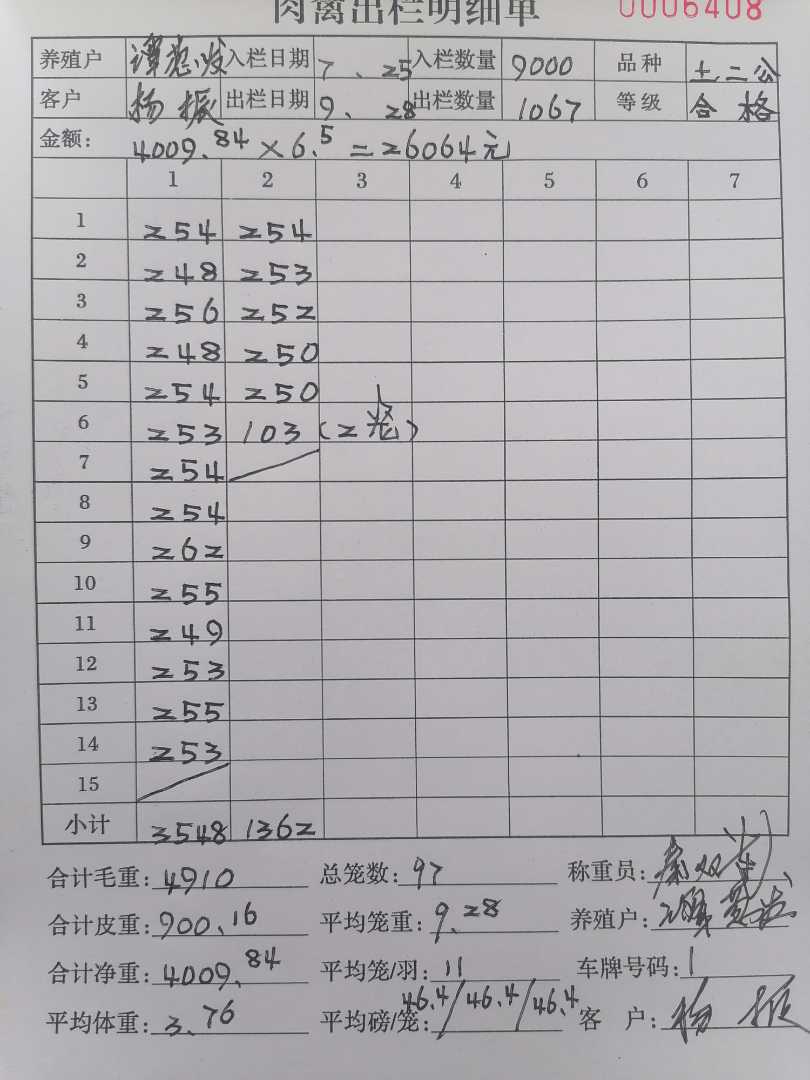 肉禽出栏明细单 0006408
养殖户 谭 入栏日期 7、25 入栏数量 9000 品种 土二公
客户 杨振 出栏日期 9、28 出栏数量 1067 等级 合格
金额: 4009.84×6.5=26064元
1 2 3 4 5 6 7
1 254 254
2 248 253
3 256 252
4 248 250
5 254 250
6 253 103 (2笼)
7 254
8 254
9 262
10 255
11 249
12 253
13 255
14 253
15
小计 3548 1362
合计毛重: 4910 总笼数: 97 称重员:
合计皮重: 900.16 平均笼重: 9.28 养殖户: 谭
合计净重: 4009.84 平均笼/羽: 11 车牌号码: 1
平均体重: 3.76 平均磅/笼: 46.4/46.4/46.4 客户: 杨振